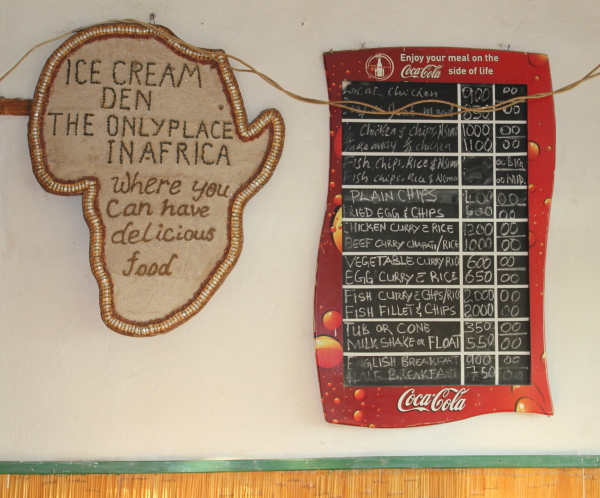 ICE CREAM
DEN
THE ONLY PLACE
IN AFRICA
Where you
Can have
delicious
food
Enjoy your meal on the
Coca-Cola side of life
Local chicken 900 00
850
Chicken & Chips 1000 00
Take away chicken 1100 00
Fish Chips. Rice & Nsima BIG
Fish chips. Rice & Nsima MID.
PLAIN CHIPS 00
FRIED EGG & CHIPS 600 00
CHICKEN CURRY & RICE 00
BEEF CURRY CHAPATI/RICE 1000 00
VEGETABLE CURRY RICE 600 00
EGG CURRY & RICE 650 00
FISH CURRY & CHIPS/RICE 2,000 00
FISH FILLET & CHIPS 2000 00
TUB OR CONE 350 00
MILK SHAKE OR FLOAT 550 00
ENGLISH BREAKFAST 900 00
BREAKFAST 750 00
Coca-Cola